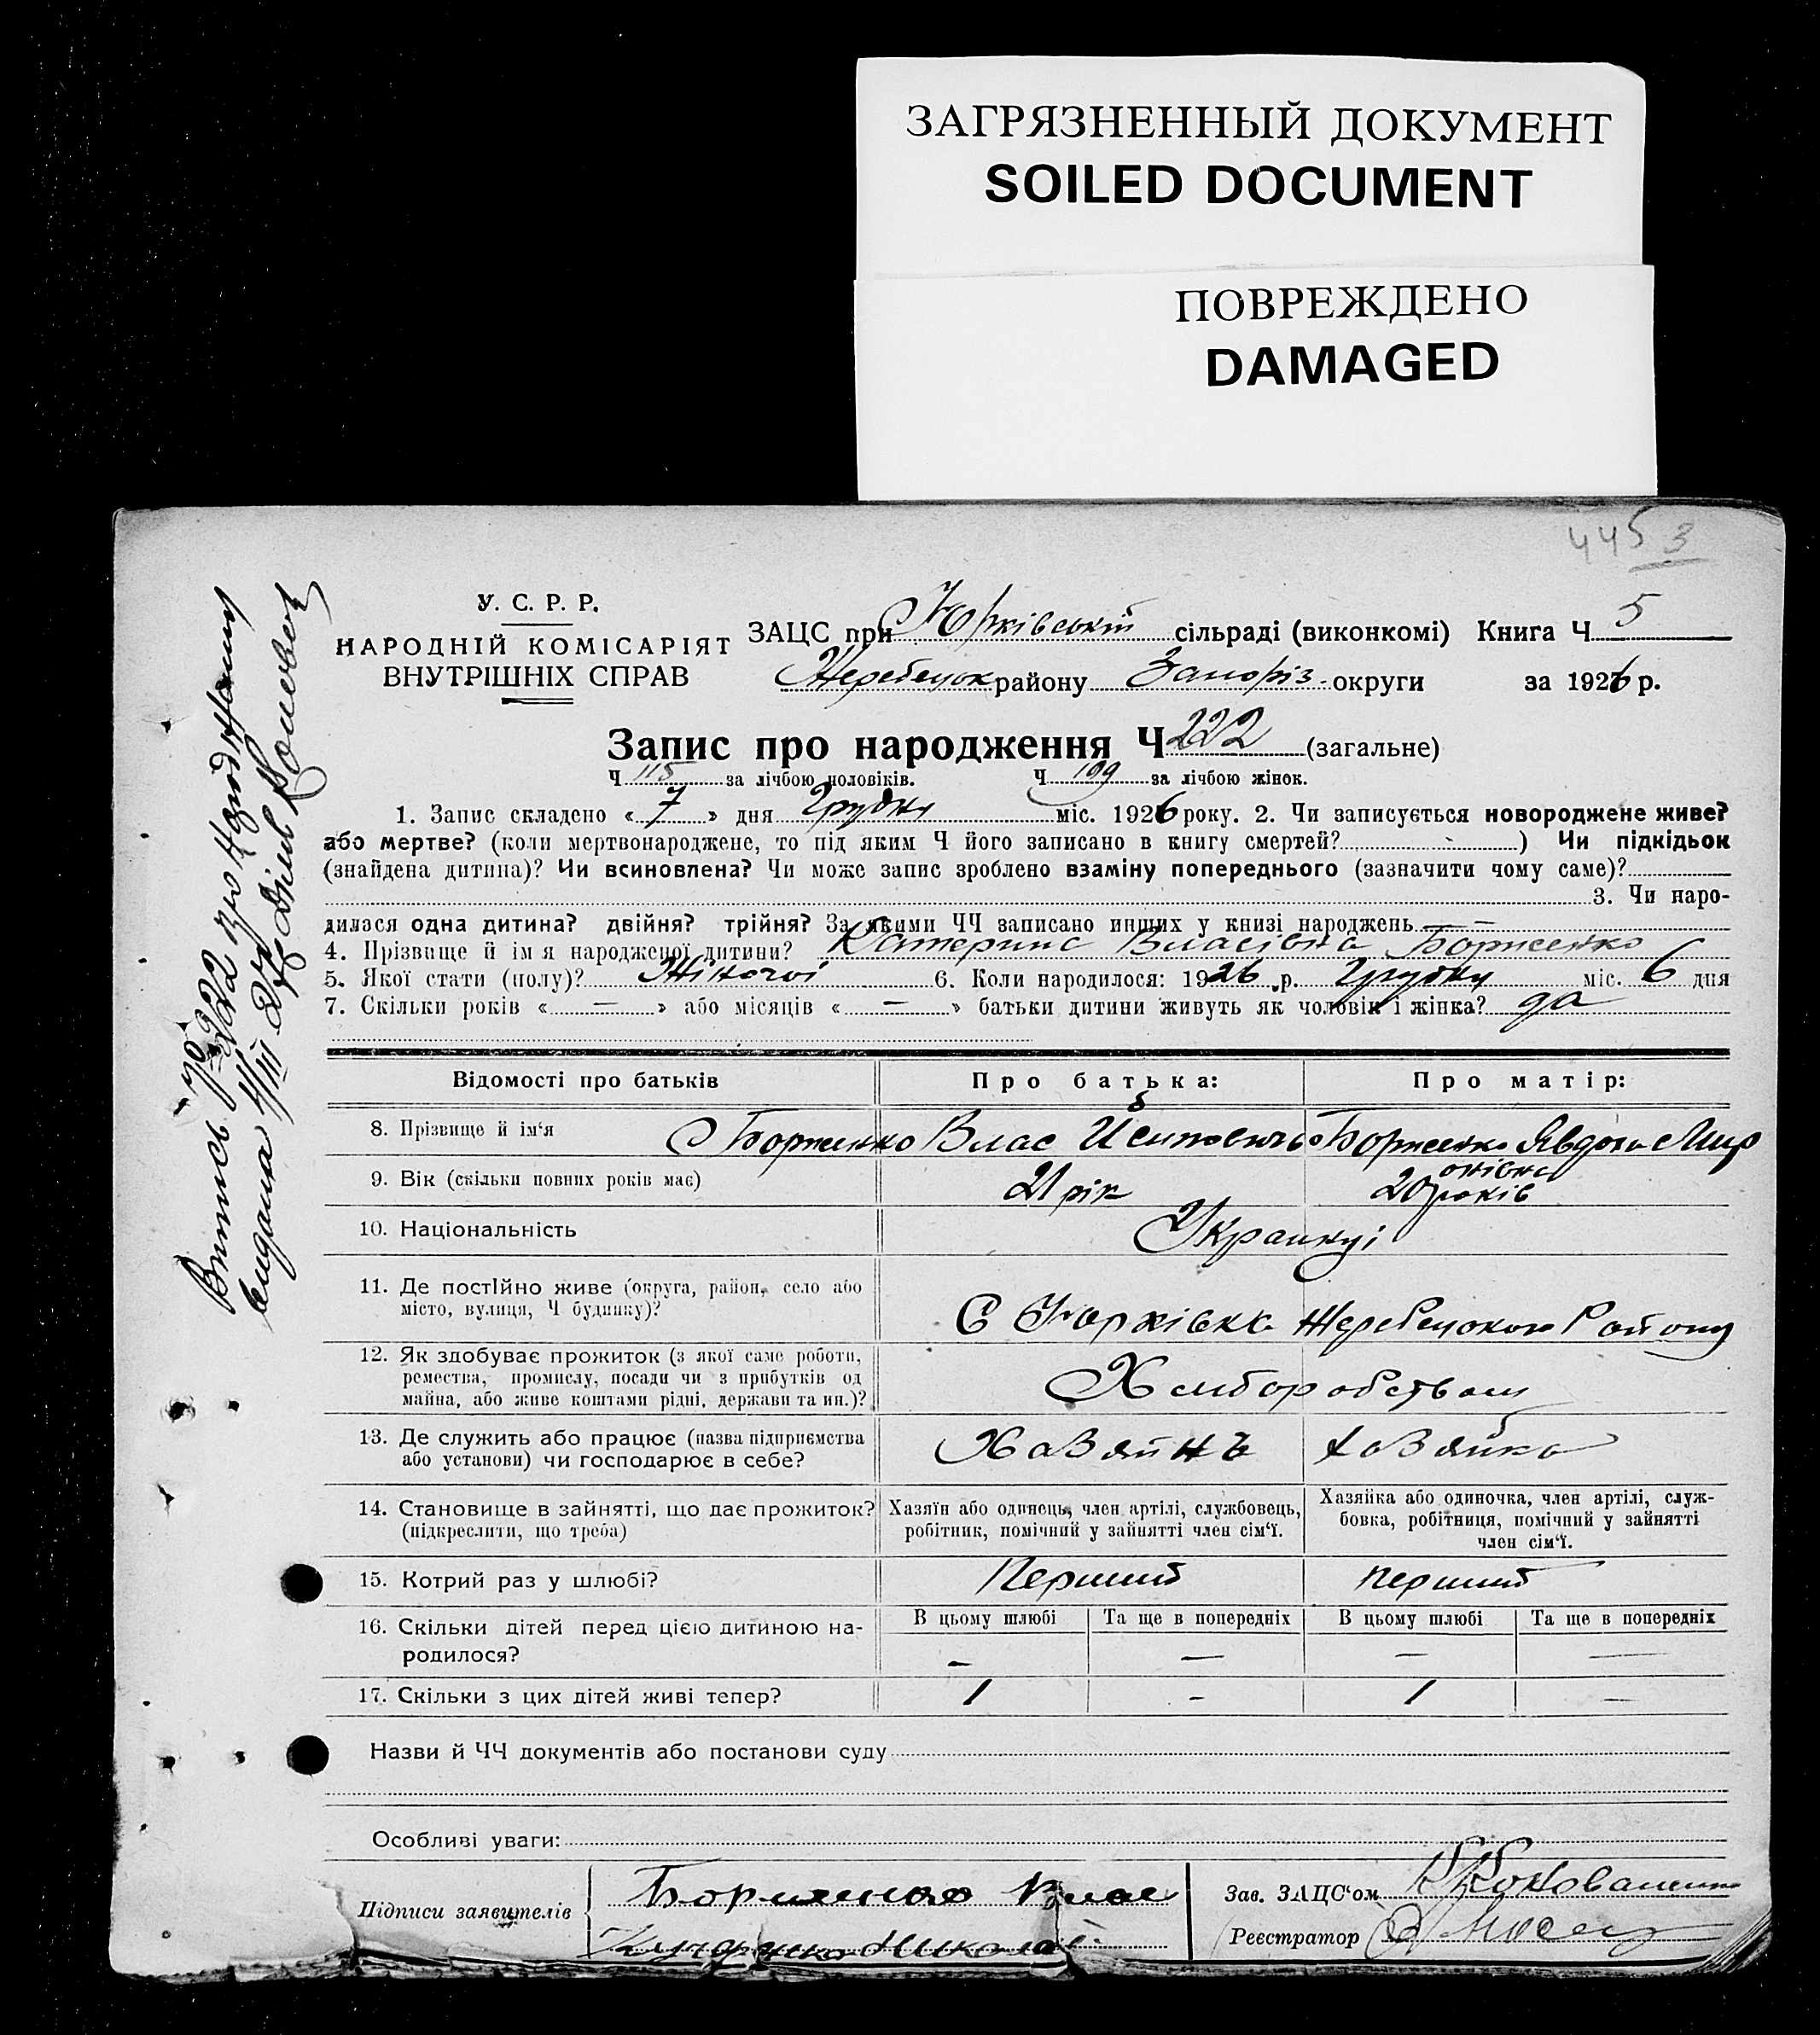 ЗАГРЯЗНЕННЫЙ ДОКУМЕНТ
SOILED DOCUMENT
ПОВРЕЖДЕНО
DAMAGED
445 3
У. С. Р. Р.
НАРОДНІЙ КОМІСАРІЯТ
ВНУТРІШНІХ СПРАВ
ЗАЦС при Юрківській сільраді (виконкомі) Книга Ч 5
Жеребецьк району Запоріз. округи за 1926 р.
Запис про народження Ч 222 (загальне)
Ч 115 за лічбою чоловіків. Ч 109 за лічбою жінок.
1. Запис складено « 7 » дня Грудня міс. 1926 року. 2. Чи записується новороджене живе?
або мертве? (коли мертвонароджене, то під яким Ч його записано в книгу смертей? - ) Чи підкідьок
(знайдена дитина)? Чи всиновлена? Чи може запис зроблено взаміну попереднього (зазначити чому саме)?
3. Чи наро-
дилася одна дитина? двійня? трійня? За якими ЧЧ записано инших у книзі народжень —
4. Прізвище й ім я народженої дитини? Катерина Власівна Борженко
5. Якої стати (полу)? Жіночої 6. Коли народилося: 1926 р. Грудня міс. 6 дня
7. Скільки років « — » або місяців « — » батьки дитини живуть як чоловік і жінка? да
Відомості про батьків Про батька: Про матір:
8. Прізвище й ім'я Борженко Влас Борженко Явдоха Мир
онівна
9. Вік (скільки повних років має) 21 рік 20 років
10. Національність Украинці
11. Де постійно живе (округа, район, село або
місто, вулиця, Ч будинку)?
С Юрківка Жеребецького Району
12. Як здобуває прожиток (з якої саме роботи,
ремества, промислу, посади чи з прибутків од
майна, або живе коштами рідні, держави та ин.)?
Хлиборобством
13. Де служить або працює (назва підприємства
або установи) чи господарює в себе?
Хазяинъ хазяйка
14. Становище в зайнятті, що дає прожиток?
(підкреслити, що треба)
Хазяїн або одинець, член артілі, службовець,
робітник, помічний у зайнятті член сім'ї.
Хазяйка або одиночка, член артілі, служ-
бовка, робітниця, помічний у зайнятті
член сім'ї.
15. Котрий раз у шлюбі? Перший перший
16. Скільки дітей перед цією дитиною на-
родилося?
В цьому шлюбі Та ще в попередніх В цьому шлюбі Та ще в попередніх
— — — —
17. Скільки з цих дітей живі тепер? 1 - 1 —
Назви й ЧЧ документів або постанови суду
Особливі уваги:
Підписи заявителів Борженко Влас
Николай
Зав. ЗАЦС'ом
Реєстратор
Выпись № 222 про
выдана 4/III